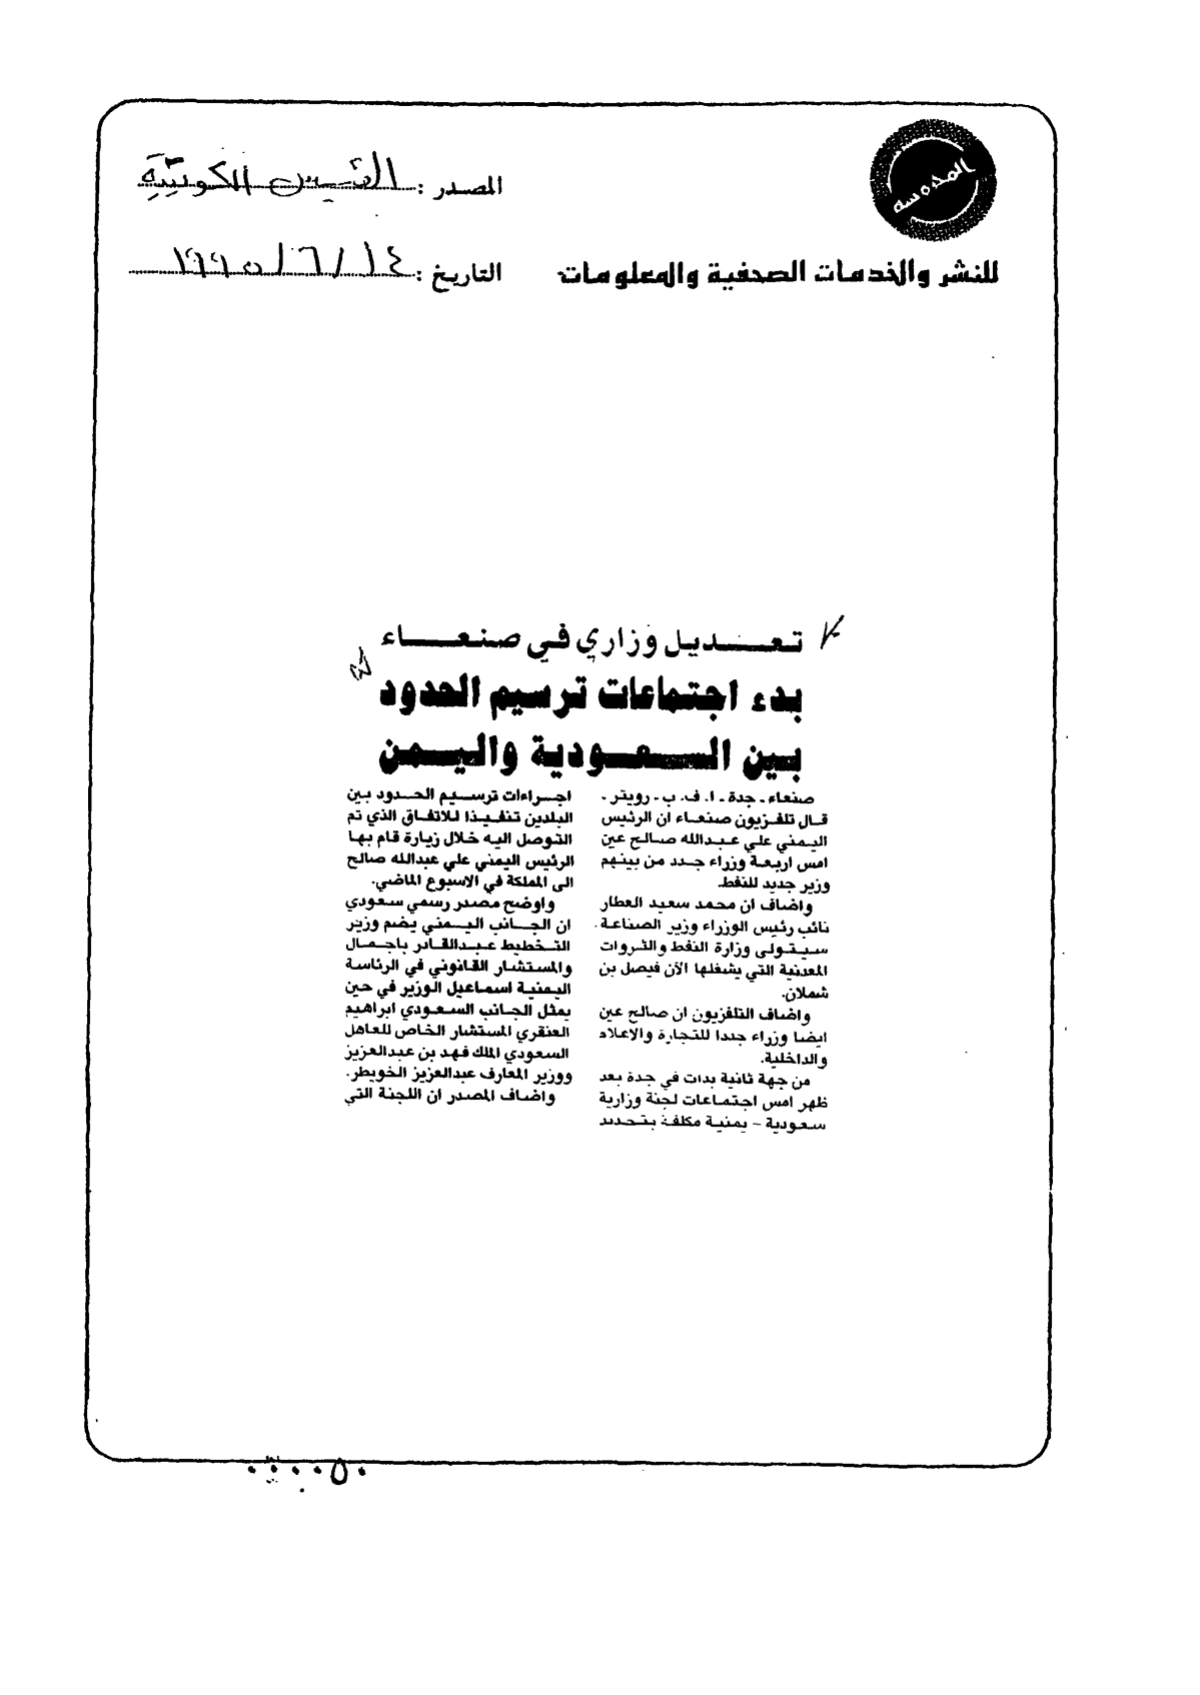 المصدر : القبس الكويتية
التاريخ : ١٤ / ٦ / ١٩٩٥
للنشر والخدمات الصحفية والمعلومات
تعـديل وزاري في صنعـاء
بدء اجتماعات ترسيم الحدود
بين السـعـودية واليـمن
صنعاء ـ جدة ـ ا. ف. ب ـ رويتر ـ
قـال تلفـزيون صنعـاء ان الرئيس
اليـمني علي عـبـدالله صـالح عين
امس اربعـة وزراء جـدد من بينهم
وزير جديد للنفط.
واضاف ان محمد سعيد العطار
نائب رئيس الوزراء وزير الصناعـة
سيـتـولى وزارة النفط والثـروات
المعدنية التي يشغلها الآن فيصل بن
شملان.
واضاف التلفزيون ان صالح عين
ايضا وزراء جددا للتجارة والاعلام
والداخلية.
من جهة ثانية بدات في جدة بعد
ظهر امس اجتـماعات لجنة وزارية
سـعـودية – يمنيـة مكلفـة بـتـحديد
اجـراءات ترسـيم الحـدود بين
البلدين تنفـيـذا للاتفـاق الذي تم
التـوصل اليـه خلال زيارة قام بهـا
الرئيس اليمني علي عبدالله صالح
الى المملكة في الاسبوع الماضي.
واوضح مصـدر رسمي سـعودي
ان الجـانب اليـمني يضم وزير
التـخطيط عـبـدالقـادر باجـمـال
والمسـتشار القـانوني في الرئاسة
اليمنية اسماعيل الوزير في حين
يمثل الجـانب السـعـودي ابراهيم
العنقري المستشار الخاص للعاهل
السعودي الملك فهد بن عبدالعزيز
ووزير المعارف عبدالعزيز الخويطر.
واضـاف المصدر ان اللجنة التي